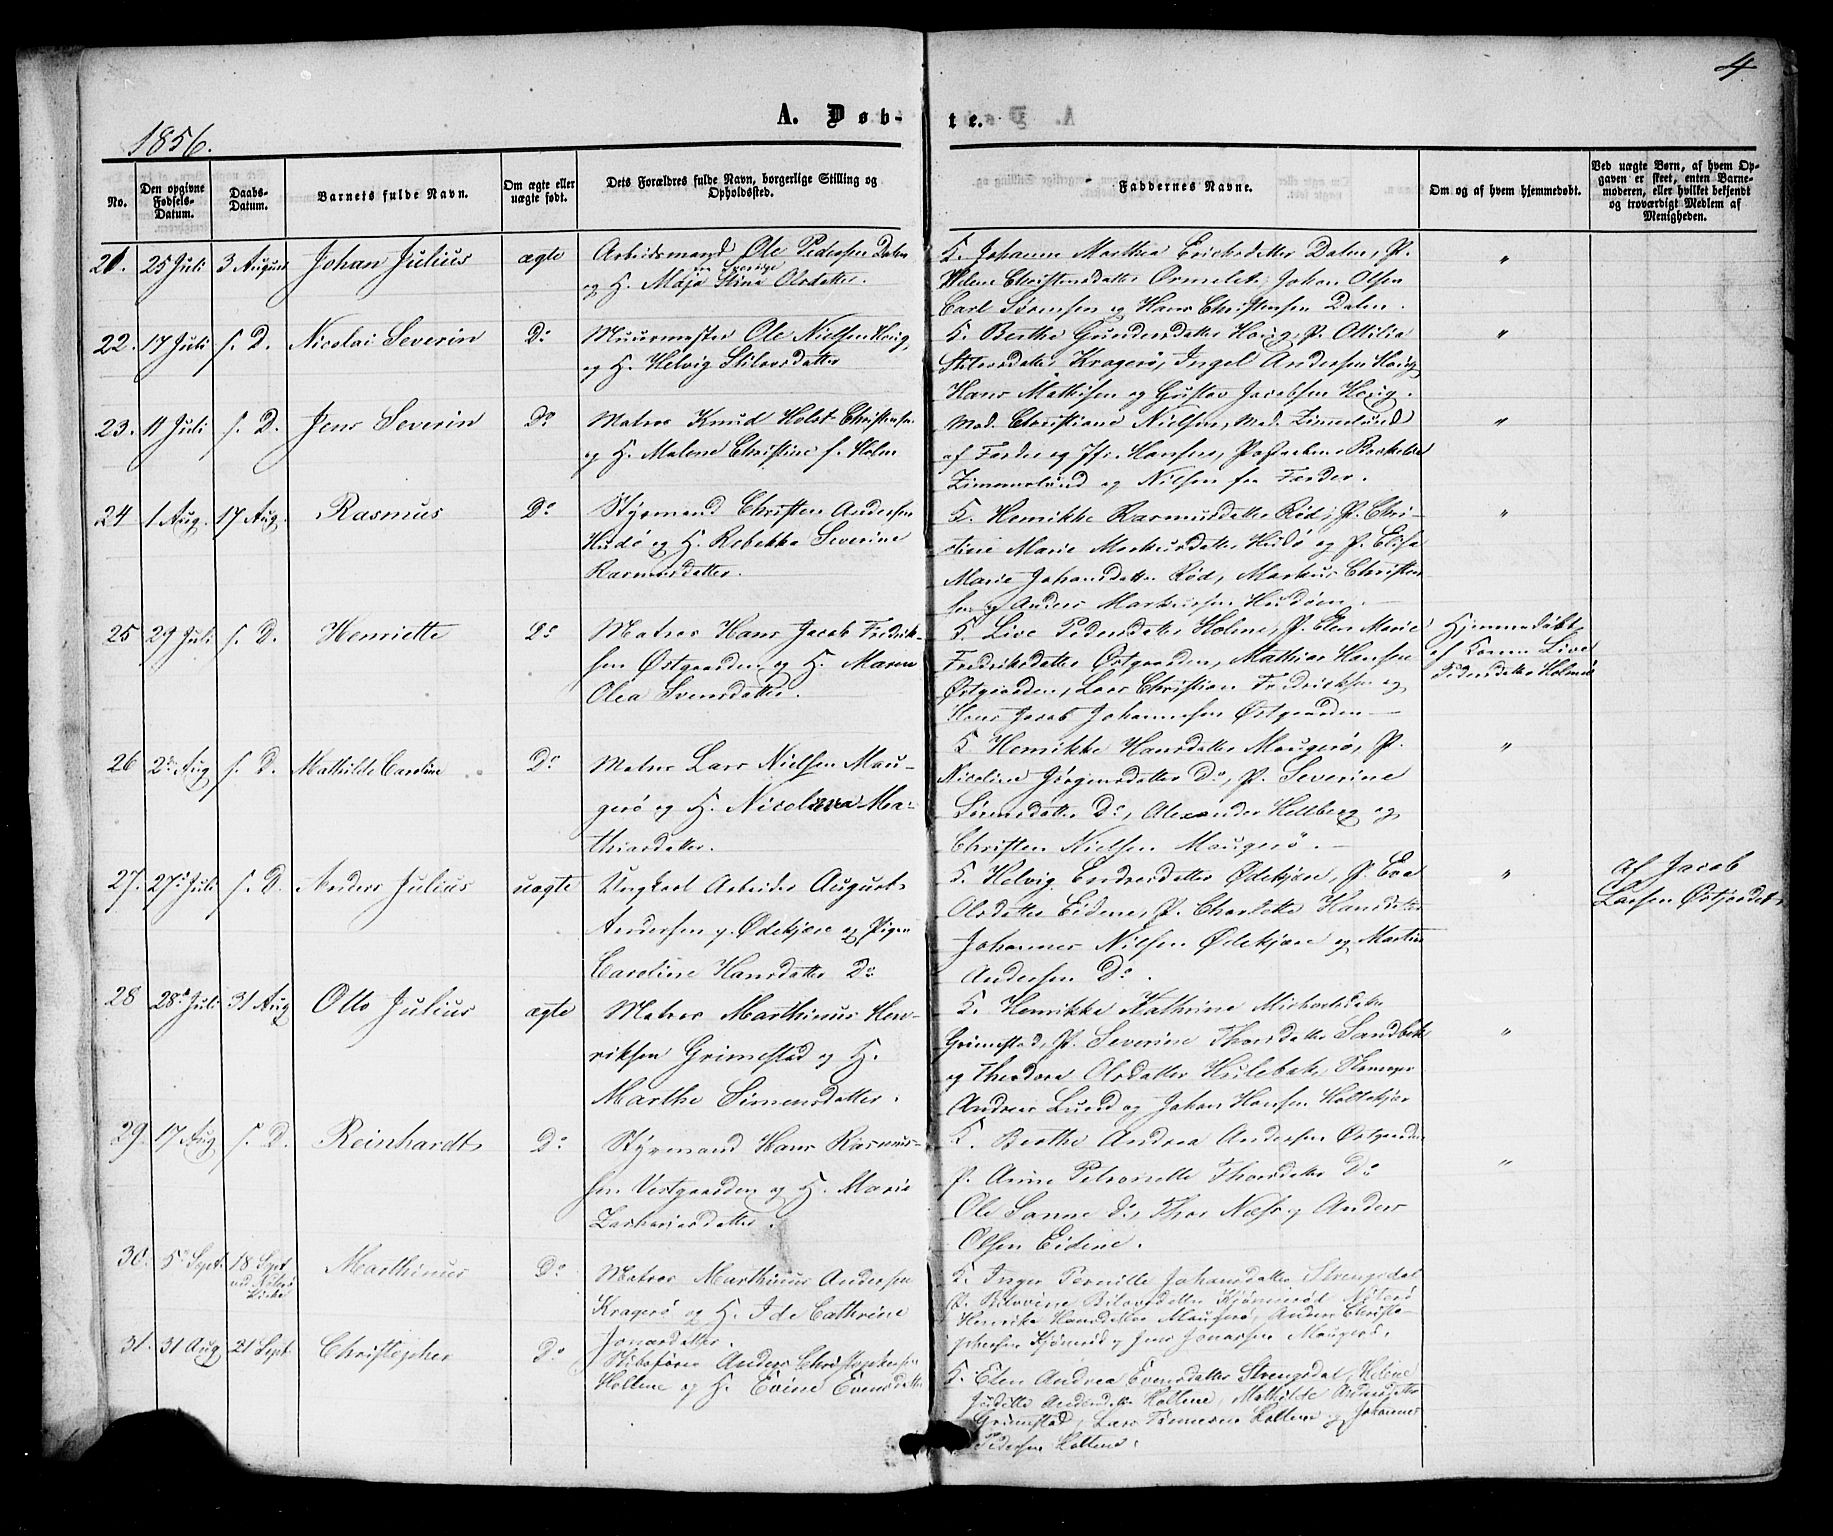 4.
A. Døb-
te.
1856.
No.
Den opgivne Fødsels-Datum.
Daabs-Datum.
Barnets fulde Navn.
Om ægte eller uægte født.
Dets Forældres fulde Navn, borgerlige Stilling og Opholdssted.
Faddernes Navne.
Om og af hvem hjemmedøbt.
Ved uægte Børn, af hvem Opgaven er skeet, enten Barnemoderen, eller hvilket bekjendt og troværdigt Medlem af Menigheden.
21. 25 Juli 3 August Johan Julius ægte
Arbeidsmand Ole Pedersen Dalen
fra Sverige
og H. Maja Stina Olsdatter.
K. Johanne Marthea Dalen, P.
Helene Christensdatter Ormelet, Johan Olsen
Carl Sørensen og Hans Christensen Dalen.
"
22. 17 Juli s. D. Nicolai Severin Do
Muurmester Ole Nielsen Houg,
og H. Helvig
K. Berthe Gundersdatter Houg, P. Ottilia
Kragerø, Ingel Andersen Houg,
Hans Mathisen og Gustav Jacobsen Houg.
"
23. 11 Juli s. D. Jens Severin Do
Matros Knud Holst Christensen
og H. Malene Christine f. Holm
Mad. Christiane Nielsen, Mad. Zimmerlund
af Færder og Jfr. Hansen,
Zimmerlund og Nilsen fra Færder.
"
24 1 Aug. 17 Aug. Rasmus Do
Styrmand Christen Andersen
Hudø og H. Rebekka Severine
Rasmusdatter.
K. Henrikke Rasmusdatter Rød, P. Chri-
stine Marie Markusdatter Hudø og P. Elise
Marie Johansdatter Rød, Markus Christen
sen og Anders Markussen Hudøen.
"
25 29 Juli s. D. Henriette Do
Matros Hans Jacob Fredrik-
sen Østgaarden og H. Maren
Olea Svensdatter.
K. Live Pedersdatter Holme, P. Elen Marie
Fredriksdatter Østgaarden, Mathias Hansen
Østgaarden, Lars Christian Fredriksen og
Hans Jacob Johannesen Østgaarden
Hjemmedøbt
af Konen Live
Pedersdatter Holme
26 2 Aug s. D. Mathilde Caroline Do
Matros Lars Nielsen Mau-
gerø og H. Nicoline Ma-
thiasdatter.
K. Henrikke Hansdatter Maugerø, P.
Nicoline Jørgensdatter Do, P. Severine
Sørensdatter Do, Alexander Hellberg og
Christen Nielsen Maugerø.
"
27. 27 Juli s. D. Anders Julius uægte
Ungkarl Arbeider August
Andersen p. Ødekjære og Pigen
Caroline Hansdatter Do
K. Helvig Endresdatter Ødekjære, P. Eva
Olsdatter Eidene, P. Charlotte Hansdatter
Johannes Nilsen Ødekjære og Martin
Andersen Do.
"
Af Jacob
Larsen Østjordet
28 28 Juli 31 Aug Otto Julius ægte
Matros Marthinus Hen-
riksen Grimestad og H.
Marthe Simensdatter.
K. Henrikke Kathrine Michaelsdatter
Grimestad, P. Severine Thorsdatter Sandbek
og Theodora Olsdatter Hulebak,
Andreas Lund og Johan Hansen Holtekjær
"
29. 17 Aug s. D. Reinhardt Do
Styrmand Hans Rasmus-
sen Vestgaarden og H. Marie
Zachariasdatter.
K. Berthe Andrea Andersen Østgaarden
P. Anne Petronelle Thorsdatter Do
Ole Sanne Do, Thor Næss og Anders
Olsen Eidene.
"
30. 5 Sept. 18 Sept Marthinus Do
ved Nøterø
Kirke
Matros Marthinus Andersen
Kragerø og H. Ide Cathrine
Jonasdatter.
K. Inger Pernille Johansdatter Strengsdal
Kjønnerød Nøterø
Henrikke Hansdatter Maugerø, Anders Christo-
phersen Kjønnerød og Jens Jonassen Maugerø.
31. 31 Aug 21 Sept. Christopher Do
Skibsfører Anders Christophersen
Holtene og H. Evine Evensdatter
K. Elen Andrea Evensdatter Strengsdal, Helene
Judithe Andersdatter Holtene, Mathilde Andersdatter
Grimestad, Lars Holtene og Johannes
Pedersen Holtene.